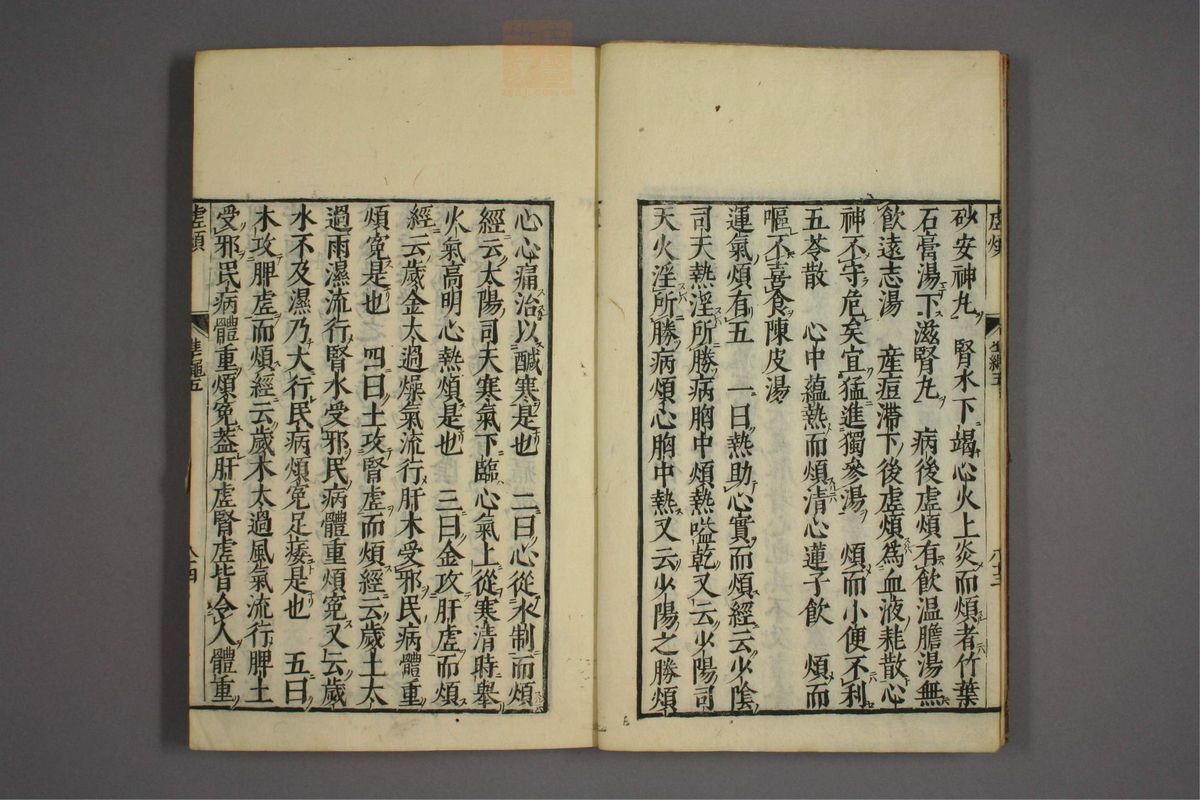 砂安神丸　腎水下竭心火上炎而煩者竹葉
石膏湯下滋腎丸　病後虛煩有飲温膽湯無
飲遠志湯　産痘滯下後虛煩爲血液耗散心
神不守危矣宜猛進獨參湯　煩而小便不利
五苓散　心中蘊熱而煩清心蓮子飲　煩而
嘔不喜食陳皮湯
運氣煩有五　一曰熱助心實而煩經云少陰
司天熱淫所勝病胸中煩熱嗌乾又云少陽司
天火淫所勝病煩心胸中熱又云少陽之勝煩
心心痛治以醎寒是也　二曰心從水制而煩
經云太陽司天寒氣下臨心氣上從寒清時舉
火氣高明心熱煩是也　三曰金攻肝虛而煩
經云歲金太過燥氣流行肝木受邪民病體重
煩冤是也　四曰土攻腎虛而煩經云歲土太
過雨濕流行腎水受邪民病體重煩冤又云歲
水不及濕乃大行民病煩冤足痿是也　五曰
木攻脾虛而煩經云歲木太過風氣流行脾土
受邪民病體重煩冤葢肝虛腎虛皆令人體重
虛煩　準繩五　八十四